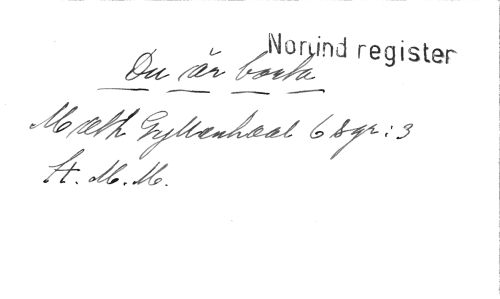 Norlind register
Du är borta
Math Gyllenhaal 6 sgr: 3
H. M. M.